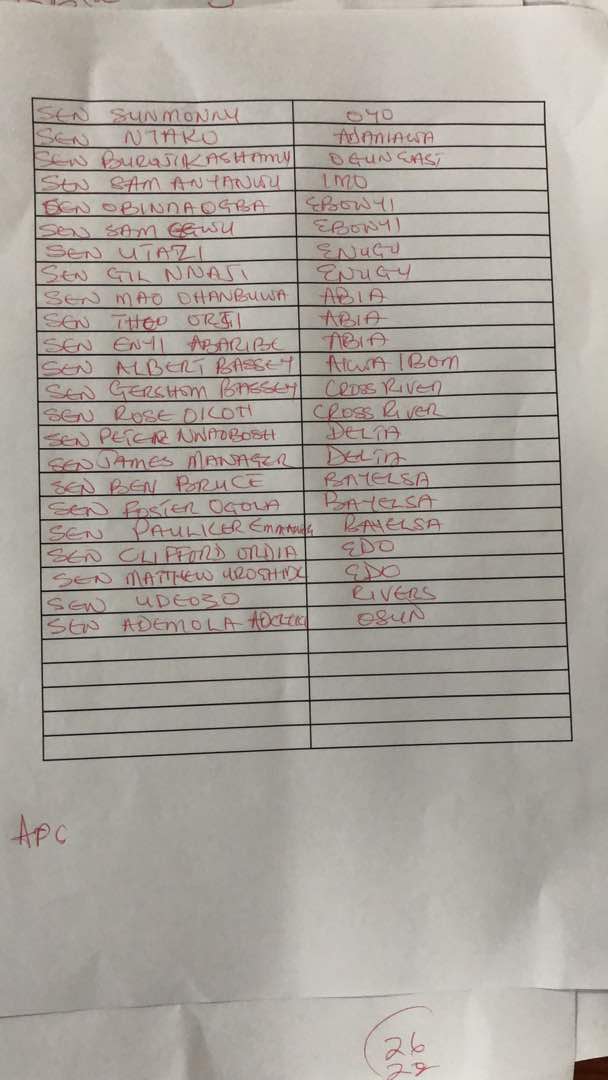 SEN SUNMONNU OYO
SEN NJAKO ADAMAWA
SEN BURUJIKASHAMU OGUN EAST
SEN SAM ANYANWU IMO
SEN OBINNAOGBA EBONYI
SEN SAM EGWU EBONYI
SEN UTAZI ENUGU
SEN GIL NNAJI ENUGU
SEN MAO OHANBUWA ABIA
SEN THEO ORJI ABIA
SEN ENYI ABARIBE ABIA
SEN ALBERT BASSEY AKWA IBOM
SEN GERSHOM BASSEY CROSS RIVER
SEN ROSE OKOH CROSS RIVER
SEN PETER NWAOBOSH DELTA
SEN JAMES MANAGER DELTA
SEN BEN BRUCE BAYELSA
SEN FOSTER OGOLA BAYELSA
SEN PAULKER BAYELSA
SEN CLIFFORD ORDIA EDO
SEN MATTHEW EDO
SEN UDEOZO RIVERS
SEN ADEMOLA OSUN
APC
26